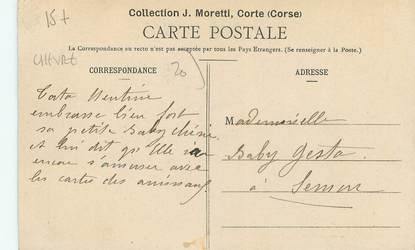 15+
Collection J. Moretti, Corte (Corse)
CARTE POSTALE
La Correspondance au recto n'est pas acceptée par tous les Pays Etrangers. (Se renseigner à la Poste.)
CHEVRE
20
CORRESPONDANCE
Tata
embrasse bien fort
sa petite Baby chérie
et lui dit qu'Elle
encore s'amuser avec
les cartes des animaux.
ADRESSE
Mademoiselle
Baby Gesta.
à Semur